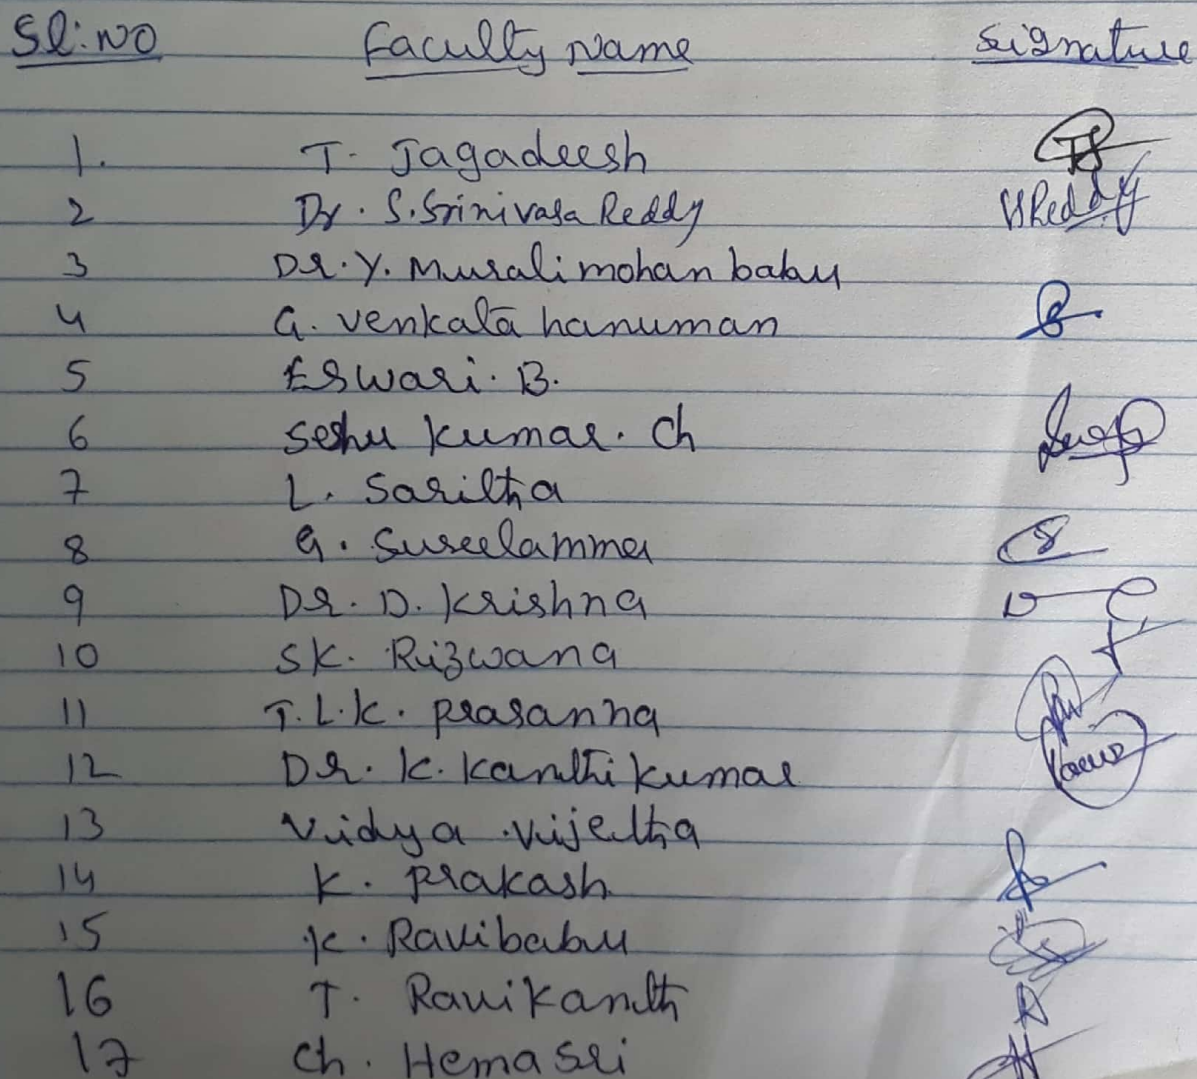 Sl:No Faculty Name Signature
1. T. Jagadeesh
2 Dr. S. Srinivasa Reddy SReddy
3 Dr. Y. Murali mohan babu
4 G. Venkata hanuman
5 Eswari. B.
6 Seshu Kumar. Ch
7 L. Saritha
8 G. Suseelamma
9 Dr. D. Krishna
10 SK. Rizwana
11 T.L.K. Prasanna
12 Dr. K. Kanthi kumar
13 Vidya Vijetha
14 K. Prakash
15 K. Ravibabu
16 T. Ravikanth
17 Ch. Hemasri